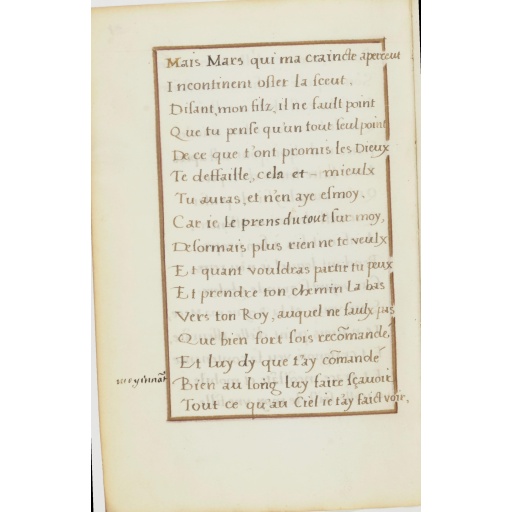 Mais Mars qui ma craincte aperceut
Incontinent oster la sceut,
Disant, mon filz, il ne fault point
Que tu pense qu'un tout seul point
De ce que t'ont promis les Dieux
Te deffaille, cela et mieulx
Tu auras, et n'en aye esmoy,
Car ie le prens du tout sur moy,
Desormais plus rien ne te veulx
Et quant vouldras partir tu peux
Et prendre ton chemin la bas
Vers ton Roy, auquel ne faulx pas
Que bien fort sois recõmandé,
Et luy dy que t'ay cõmandé
Bien au long luy faire sçavoir
Tout ce qu'au Ciel ie t'ay faict voir,